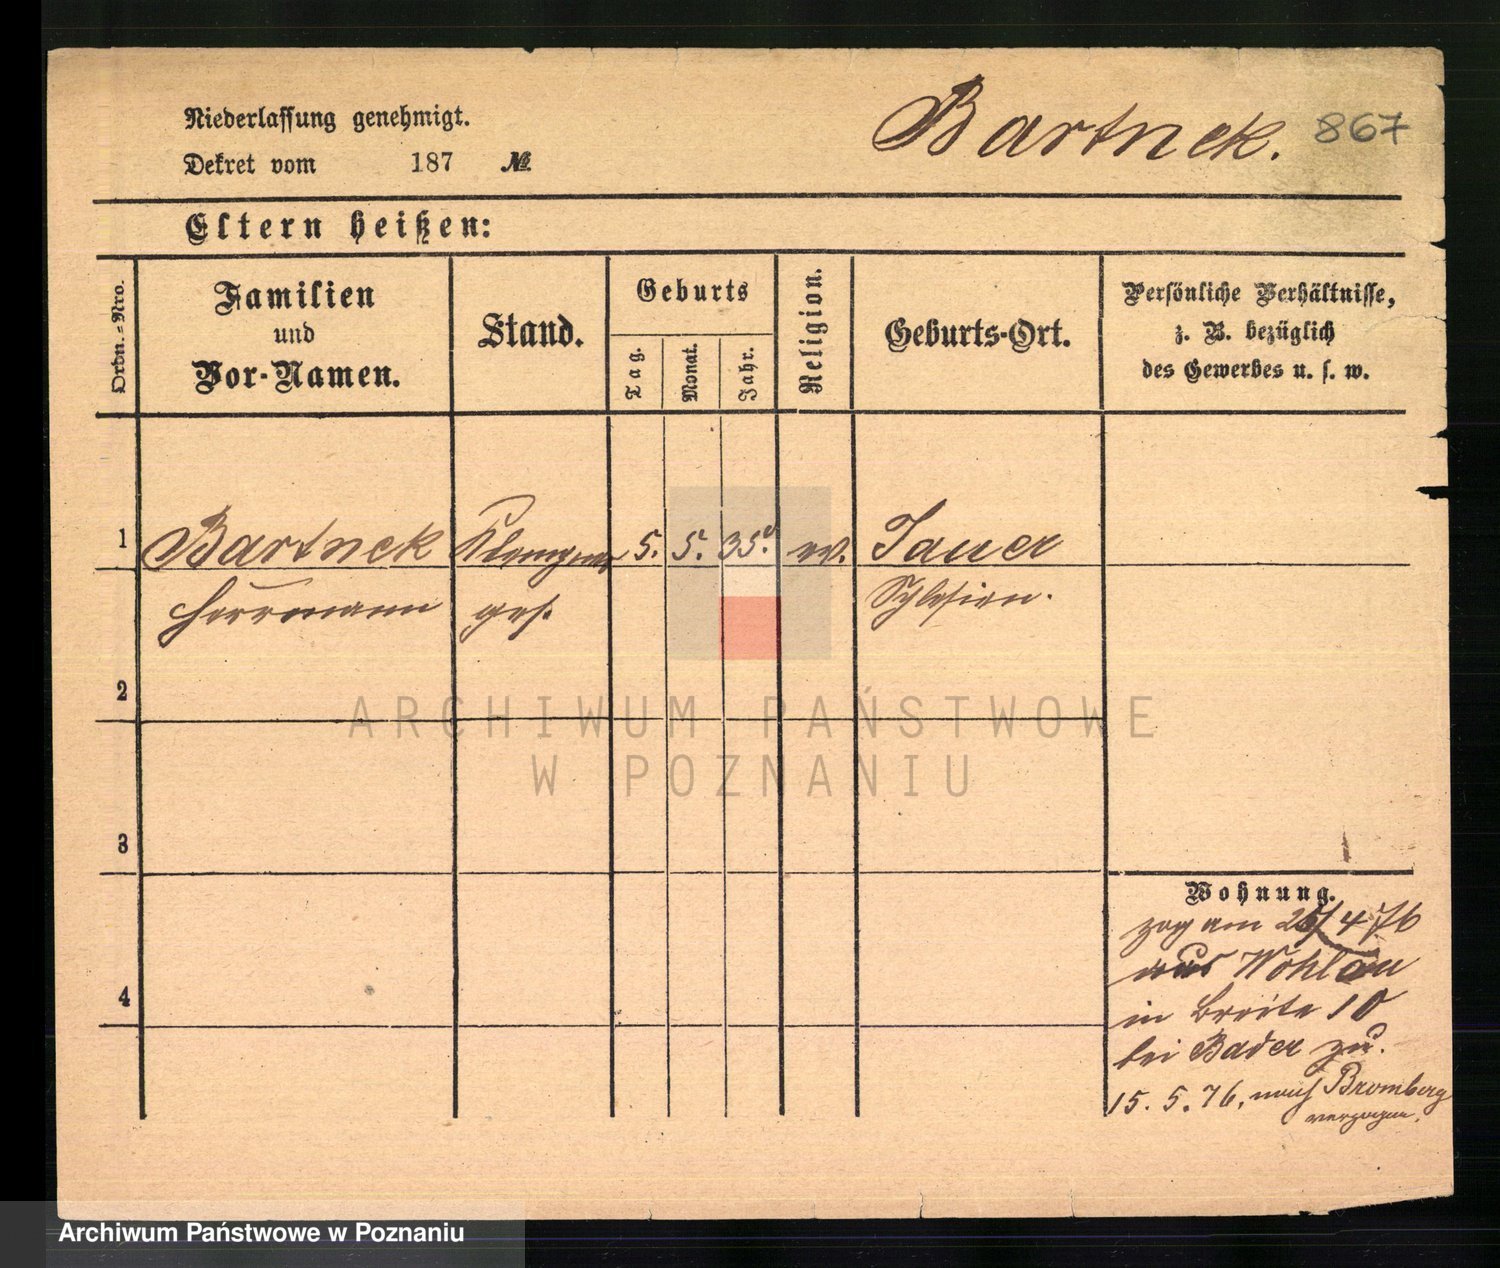 Bartnek. 867
Niederlassung genehmigt.
Dekret vom 187 №
Eltern heißen:
Ordn.-Nro.
Familien
und
Vor-Namen.
Stand.
Geburts
Tag.
Monat.
Jahr.
Religion.
Geburts-Ort.
Persönliche Verhältnisse,
z. B. bezüglich
des Gewerbes u. s. w.
1 Bartnek Klempner 5. 5. 35. ev. Jauer
Herrmann ges. Schlesien.
2
ARCHIWUM PAŃSTWOWE
W POZNANIU
3
Wohnung.
zog am 4 76
aus Wohlau
in Breite 10
bei Bader zu.
4
15. 5. 76, nach Bromberg
verzogen.
Archiwum Państwowe w Poznaniu